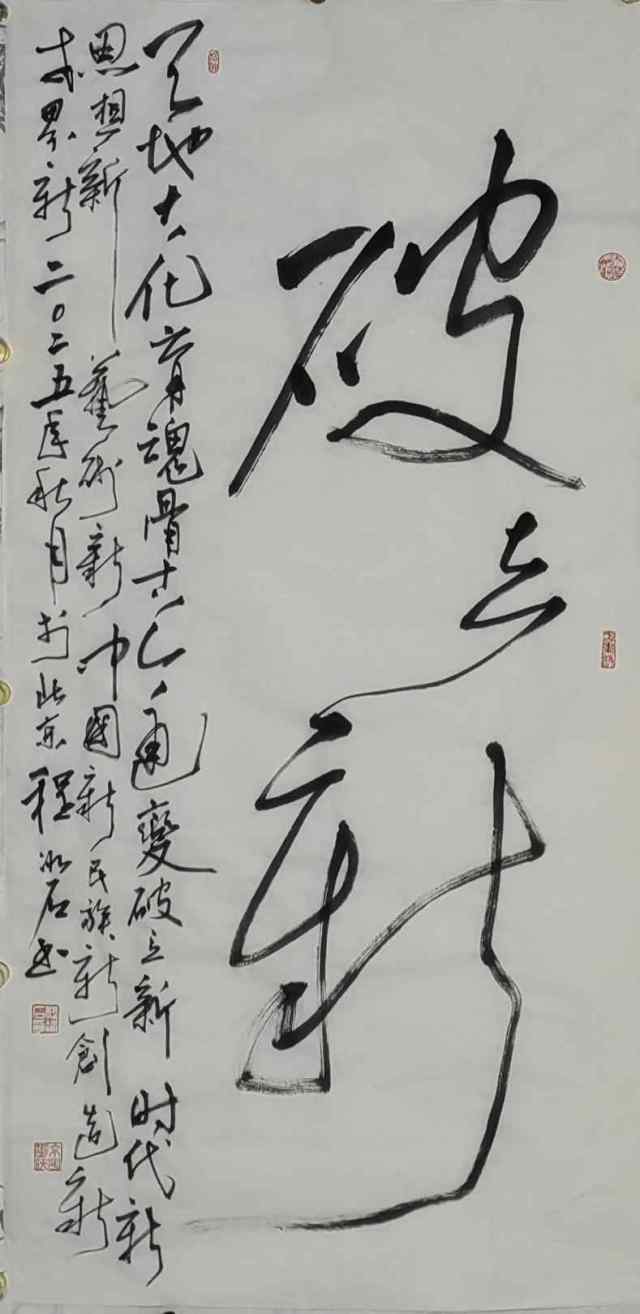 破立新
天地大化育魂骨古今通變破立新 时代新
思想新 藝術新 中國新 民族新 創造新
世界新 二〇二五年秋月於北京程冰石书